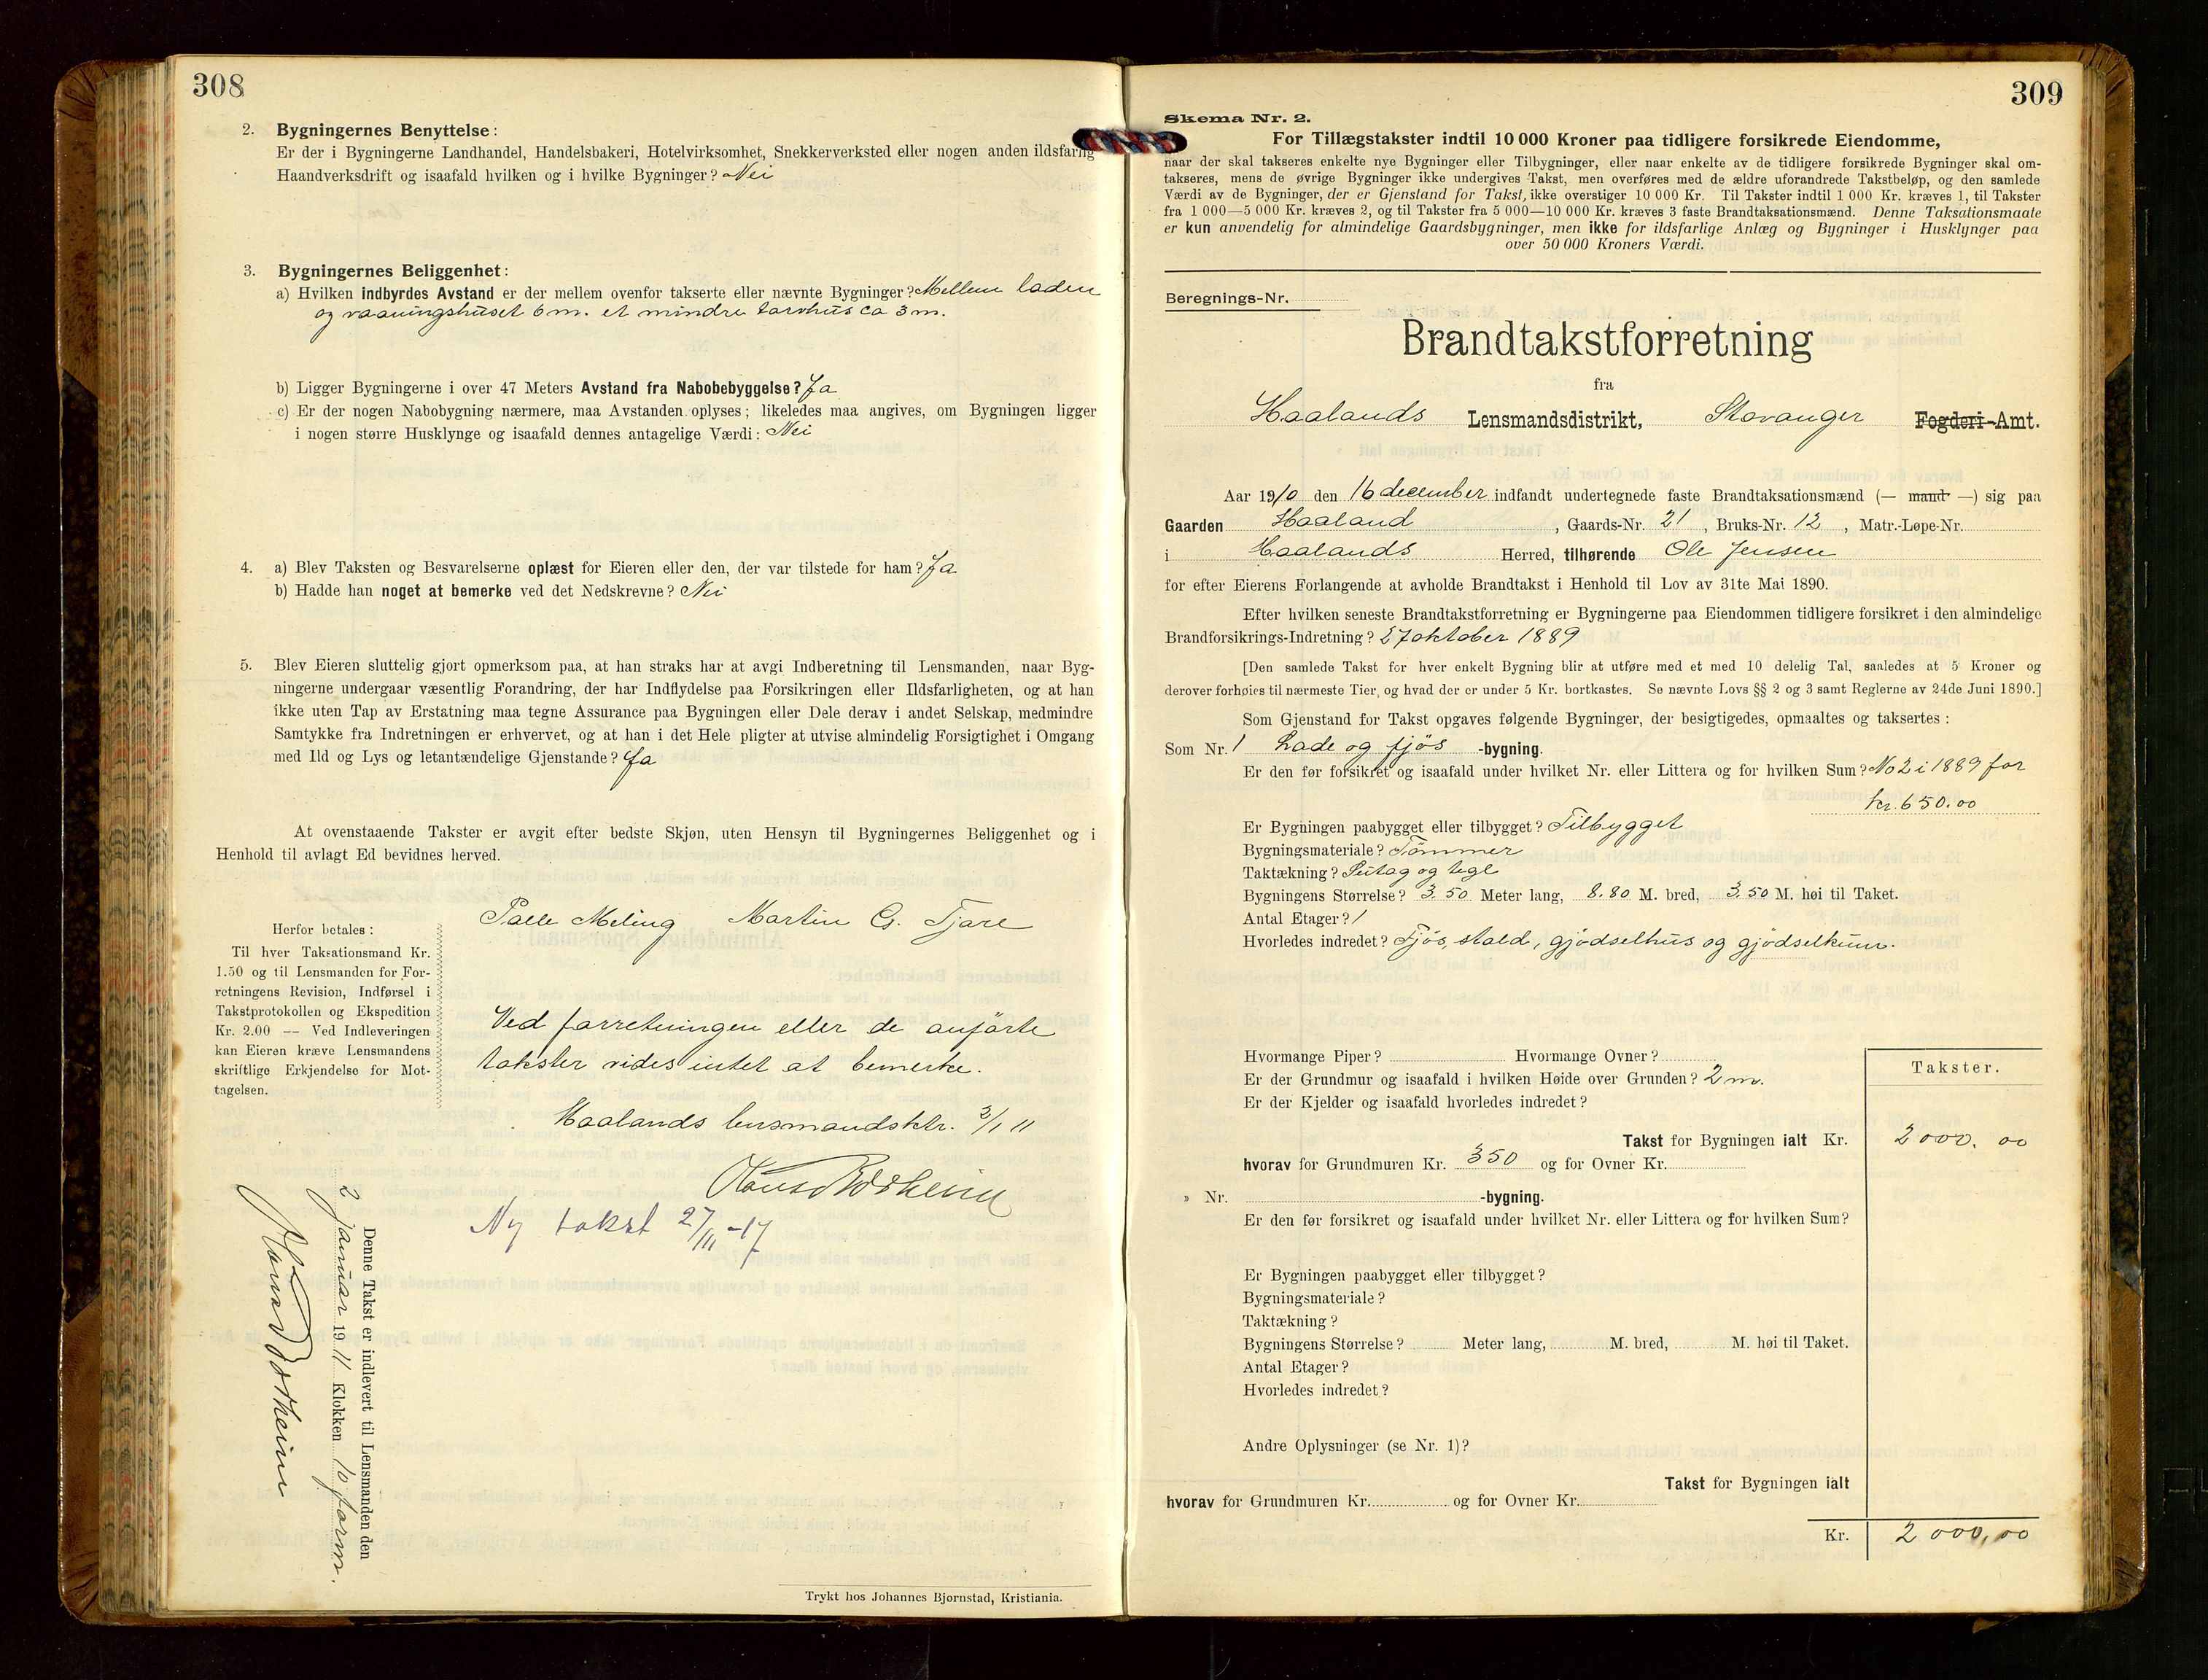 308
2. Bygningernes Benyttelse:
Er der i Bygningerne Landhandel, Handelsbakeri, Hotelvirksomhet, Snekkerverksted eller nogen anden ildsfarlig
Haandverksdrift og isaafald hvilken og i hvilke Bygninger? Nei
3. Bygningernes Beliggenhet:
a) Hvilken indbyrdes Avstand er der mellem ovenfor takserte eller nævnte Bygninger? Mellem laden
og vaaningshuset 6 m. et mindre torvhus ca 3 m.
b) Ligger Bygningerne i over 47 Meters Avstand fra Nabobebyggelse? Ja
c) Er der nogen Nabobygning nærmere, maa Avstanden oplyses; likeledes maa angives, om Bygningen ligger
i nogen større Husklynge og isaafald dennes antagelige Værdi: Nei
4. a) Blev Taksten og Besvarelserne oplæst for Eieren eller den, der var tilstede for ham? Ja
b) Hadde han noget at bemerke ved det Nedskrevne? Nei
5. Blev Eieren sluttelig gjort opmerksom paa, at han straks har at avgi Indberetning til Lensmanden, naar Byg-
ningerne undergaar væsentlig Forandring, der har Indflydelse paa Forsikringen eller Ildsfarligheten, og at han
ikke uten Tap av Erstatning maa tegne Assurance paa Bygningen eller Dele derav i andet Selskap, medmindre
Samtykke fra Indretningen er erhvervet, og at han i det Hele pligter at utvise almindelig Forsigtighet i Omgang
med Ild og Lys og letantændelige Gjenstande? Ja
At ovenstaaende Takster er avgit efter bedste Skjøn, uten Hensyn til Bygningernes Beliggenhet og i
Henhold til avlagt Ed bevidnes herved.
Palle Meling Martin G. Tjare
Herfor betales:
Til hver Taksationsmand Kr.
1.50 og til Lensmanden for For-
retningens Revision, Indførsel i
Takstprotokollen og Ekspedition
Kr. 2.00 — Ved Indleveringen
kan Eieren kræve Lensmandens
skriftlige Erkjendelse for Mot-
tagelsen.
Ved forretningen eller de anførte
takster vides intet at bemerke.
Haalands lensmandsktr. 3/1 11
Ny takst 27/11 -17
Denne Takst er indlevert til Lensmanden den
2 januar 1911 Klokken 10 form.
Trykt hos Johannes Bjørnstad, Kristiania.
309
Skema Nr. 2.
For Tillægstakster indtil 10 000 Kroner paa tidligere forsikrede Eiendomme,
naar der skal takseres enkelte nye Bygninger eller Tilbygninger, eller naar enkelte av de tidligere forsikrede Bygninger skal om-
takseres, mens de øvrige Bygninger ikke undergives Takst, men overføres med de ældre uforandrede Takstbeløp, og den samlede
Værdi av de Bygninger, der er Gjenstand for Takst, ikke overstiger 10 000 Kr. Til Takster indtil 1 000 Kr. kræves 1, til Takster
fra 1 000—5 000 Kr. kræves 2, og til Takster fra 5 000—10 000 Kr. kræves 3 faste Brandtaksationsmænd. Denne Taksationsmaate
er kun anvendelig for almindelige Gaardsbygninger, men ikke for ildsfarlige Anlæg og Bygninger i Husklynger paa
over 50 000 Kroners Værdi.
Beregnings-Nr.
Brandtakstforretning
fra
Haalands Lensmandsdistrikt, Stavanger Fogderi-Amt.
Aar 1910 den 16 december indfandt undertegnede faste Brandtaksationsmænd (— mand —) sig paa
Gaarden Haaland, Gaards-Nr. 21, Bruks-Nr. 12, Matr.-Løpe-Nr.
i Haalands Herred, tilhørende Ole Jensen
for efter Eierens Forlangende at avholde Brandtakst i Henhold til Lov av 31te Mai 1890.
Efter hvilken seneste Brandtakstforretning er Bygningerne paa Eiendommen tidligere forsikret i den almindelige
Brandforsikrings-Indretning? 27 oktober 1889
[Den samlede Takst for hver enkelt Bygning blir at utføre med et med 10 delelig Tal, saaledes at 5 Kroner og
derover forhøies til nærmeste Tier, og hvad der er under 5 Kr. bortkastes. Se nævnte Lovs §§ 2 og 3 samt Reglerne av 24de Juni 1890.]
Som Gjenstand for Takst opgaves følgende Bygninger, der besigtigedes, opmaaltes og taksertes:
Som Nr. 1 Lade og fjös -bygning.
Er den før forsikret og isaafald under hvilket Nr. eller Littera og for hvilken Sum? No 2 i 1889 for
kr. 650.00
Er Bygningen paabygget eller tilbygget? Tilbygget
Bygningsmateriale? Tömmer
Taktækning? og tegl
Bygningens Størrelse? 3.50 Meter lang, 8.80 M. bred, 3.50 M. høi til Taket.
Antal Etager? 1
Hvorledes indredet? Fjös, stald, gjödselhus og gjödselkum.
Hvormange Piper? Hvormange Ovner?
Takster.
Er der Grundmur og isaafald i hvilken Høide over Grunden? 2 m.
Er der Kjelder og isaafald hvorledes indredet?
Takst for Bygningen ialt Kr. 2000.00
hvorav for Grundmuren Kr. 350 og for Ovner Kr.
» Nr. -bygning.
Er den før forsikret og isaafald under hvilket Nr. eller Littera og for hvilken Sum?
Er Bygningen paabygget eller tilbygget?
Bygningsmateriale?
Taktækning?
Bygningens Størrelse? Meter lang, M. bred, M. høi til Taket.
Antal Etager?
Hvorledes indredet?
Andre Oplysninger (se Nr. 1)?
Takst for Bygningen ialt
hvorav for Grundmuren Kr. og for Ovner Kr.
Kr. 2000,00